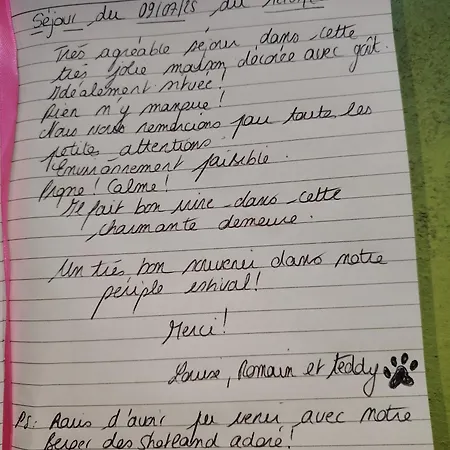 Séjour du 09/07/25 du
Très agréable séjour dans cette
très jolie maison, décorée avec goût.
Idéalement situé!
Rien n'y manque!
Nous vous remercions pour toutes les
petites attentions.
Environnement paisible.
Propre! Calme!
Il fait bon vivre dans cette
charmante demeure.
Un très bon souvenir dans notre
périple estival!
Merci!
Louise, Romain et Teddy
PS: Ravis d'avoir pu venir avec notre
Berger des Shetland adoré!